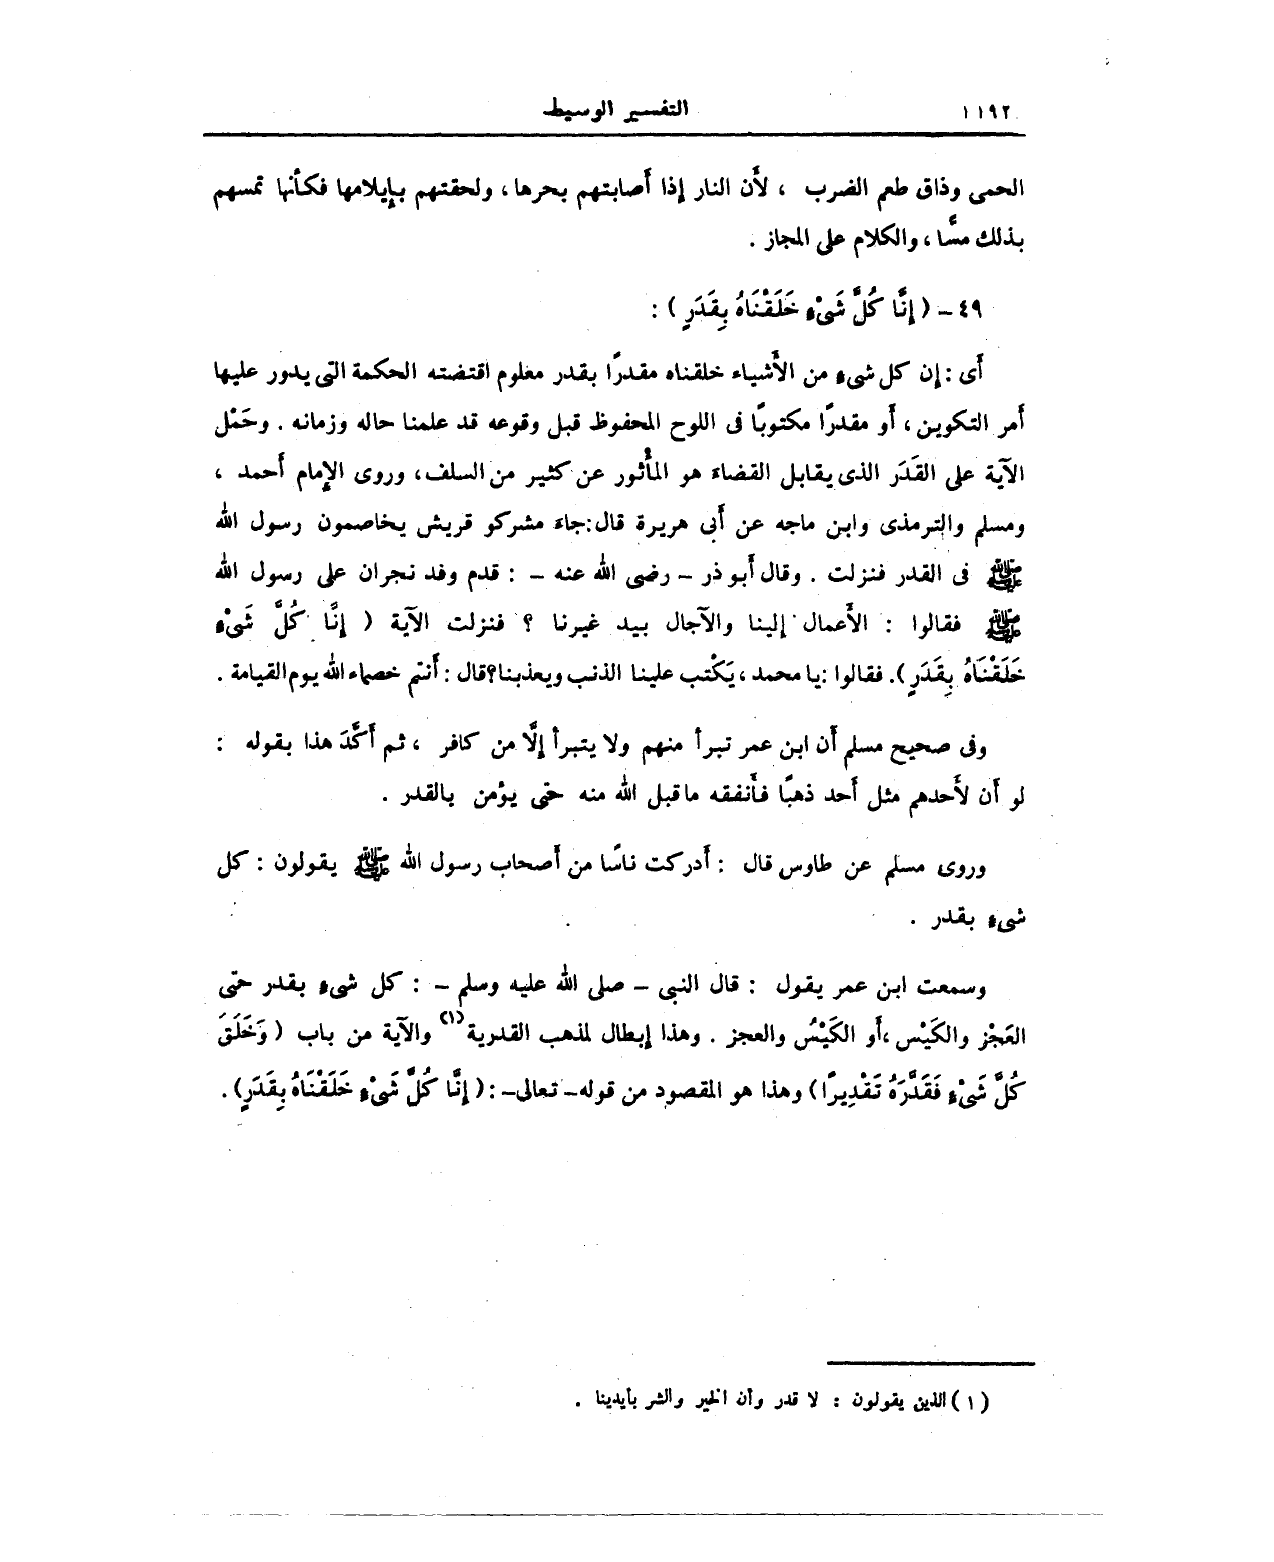 ١١٩٢ التفسير الوسيط
الحمى وذاق طعم الضرب ، لأن النار إذا أصابتهم بحرها ، ولحقتهم بإيلامها فكأنها تمسهم
بذلك مسًّا ، والكلام على المجاز .
٤٩ - ( إِنَّا كُلَّ شَىْءٍ خَلَقْنَاهُ بِقَدَرٍ ) :
أى : إن كل شىء من الأشياء خلقناه مقدرًا بقدر معلوم اقتضته الحكمة التى يدور عليها
أمر التكوين ، أو مقدرًا مكتوبًا فى اللوح المحفوظ قبل وقوعه قد علمنا حاله وزمانه . وحَمْل
الآية على القَدَر الذى يقابل القضاء هو المأْثور عن كثير من السلف ، وروى الإمام أحمد ،
ومسلم والترمذى وابن ماجه عن أبى هريرة قال : جاء مشركو قريش يخاصمون رسول الله
ﷺ فى القدر فنزلت . وقال أبو ذر - رضى الله عنه - : قدم وفد نجران على رسول الله
ﷺ فقالوا : الأعمال إلينا والآجال بيد غيرنا ؟ فنزلت الآية ( إِنَّا كُلَّ شَىْءٍ
خَلَقْنَاهُ بِقَدَرٍ ) . فقالوا : يا محمد ، يَكْتب علينا الذنب ويعذبنا ؟ قال : أنتم خصماء الله يوم القيامة .
وفى صحيح مسلم أن ابن عمر تبرأ منهم ولا يتبرأ إلَّا من كافر ، ثم أكَّدَ هذا بقوله :
لو أن لأحدهم مثل أحد ذهبًا فأنفقه ما قبل الله منه حتى يؤمن بالقدر .
وروى مسلم عن طاوس قال : أدركت ناسًا من أصحاب رسول الله ﷺ يقولون : كل
شىء بقدر .
وسمعت ابن عمر يقول : قال النبى - صلى الله عليه وسلم - : كل شىء بقدر حتى
العَجْز والكَيْس ، أو الكَيْسُ والعجز . وهذا إبطال لمذهب القدرية (١) والآية من باب ( وَخَلَقَ
كُلَّ شَىْءٍ فَقَدَّرَهُ تَقْدِيرًا ) وهذا هو المقصود من قوله - تعالى - : ( إِنَّا كُلَّ شَىْءٍ خَلَقْنَاهُ بِقَدَرٍ ) .
( ١ ) الذين يقولون : لا قدر وأن الخير والشر بأيدينا .